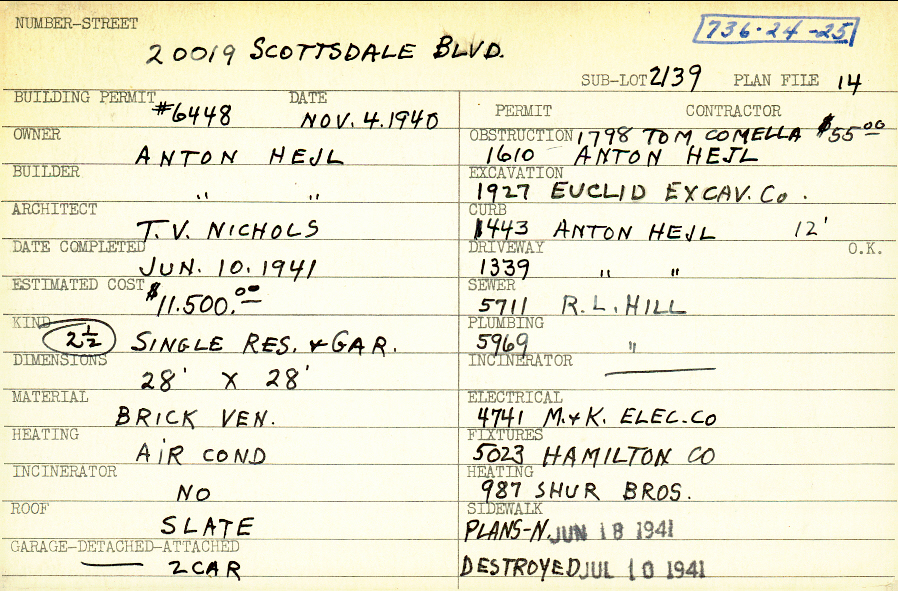 NUMBER-STREET
736-24-25
20019 SCOTTSDALE BLVD.
SUB-LOT 2139 PLAN FILE 14
BUILDING PERMIT #6448 DATE NOV. 4. 1940
OWNER ANTON HEJL
BUILDER " "
ARCHITECT T.V. NICHOLS
DATE COMPLETED JUN. 10. 1941
ESTIMATED COST $11.500.00
KIND 2½ SINGLE RES. & GAR.
DIMENSIONS 28' X 28'
MATERIAL BRICK VEN.
HEATING AIR COND
INCINERATOR NO
ROOF SLATE
GARAGE-DETACHED-ATTACHED
— 2 CAR
PERMIT CONTRACTOR
OBSTRUCTION 1798 TOM COMELLA $55.00
1610 ANTON HEJL
EXCAVATION
1927 EUCLID EXCAV. Co.
CURB
1443 ANTON HEJL 12'
DRIVEWAY O.K.
1339 " "
SEWER
5711 R.L. HILL
PLUMBING
5969 "
INCINERATOR —
ELECTRICAL
4741 M. & K. ELEC. CO
FIXTURES
5023 HAMILTON CO
HEATING
987 SHUR BROS.
SIDEWALK
PLANS-N. JUN 18 1941
DESTROYED JUL 10 1941